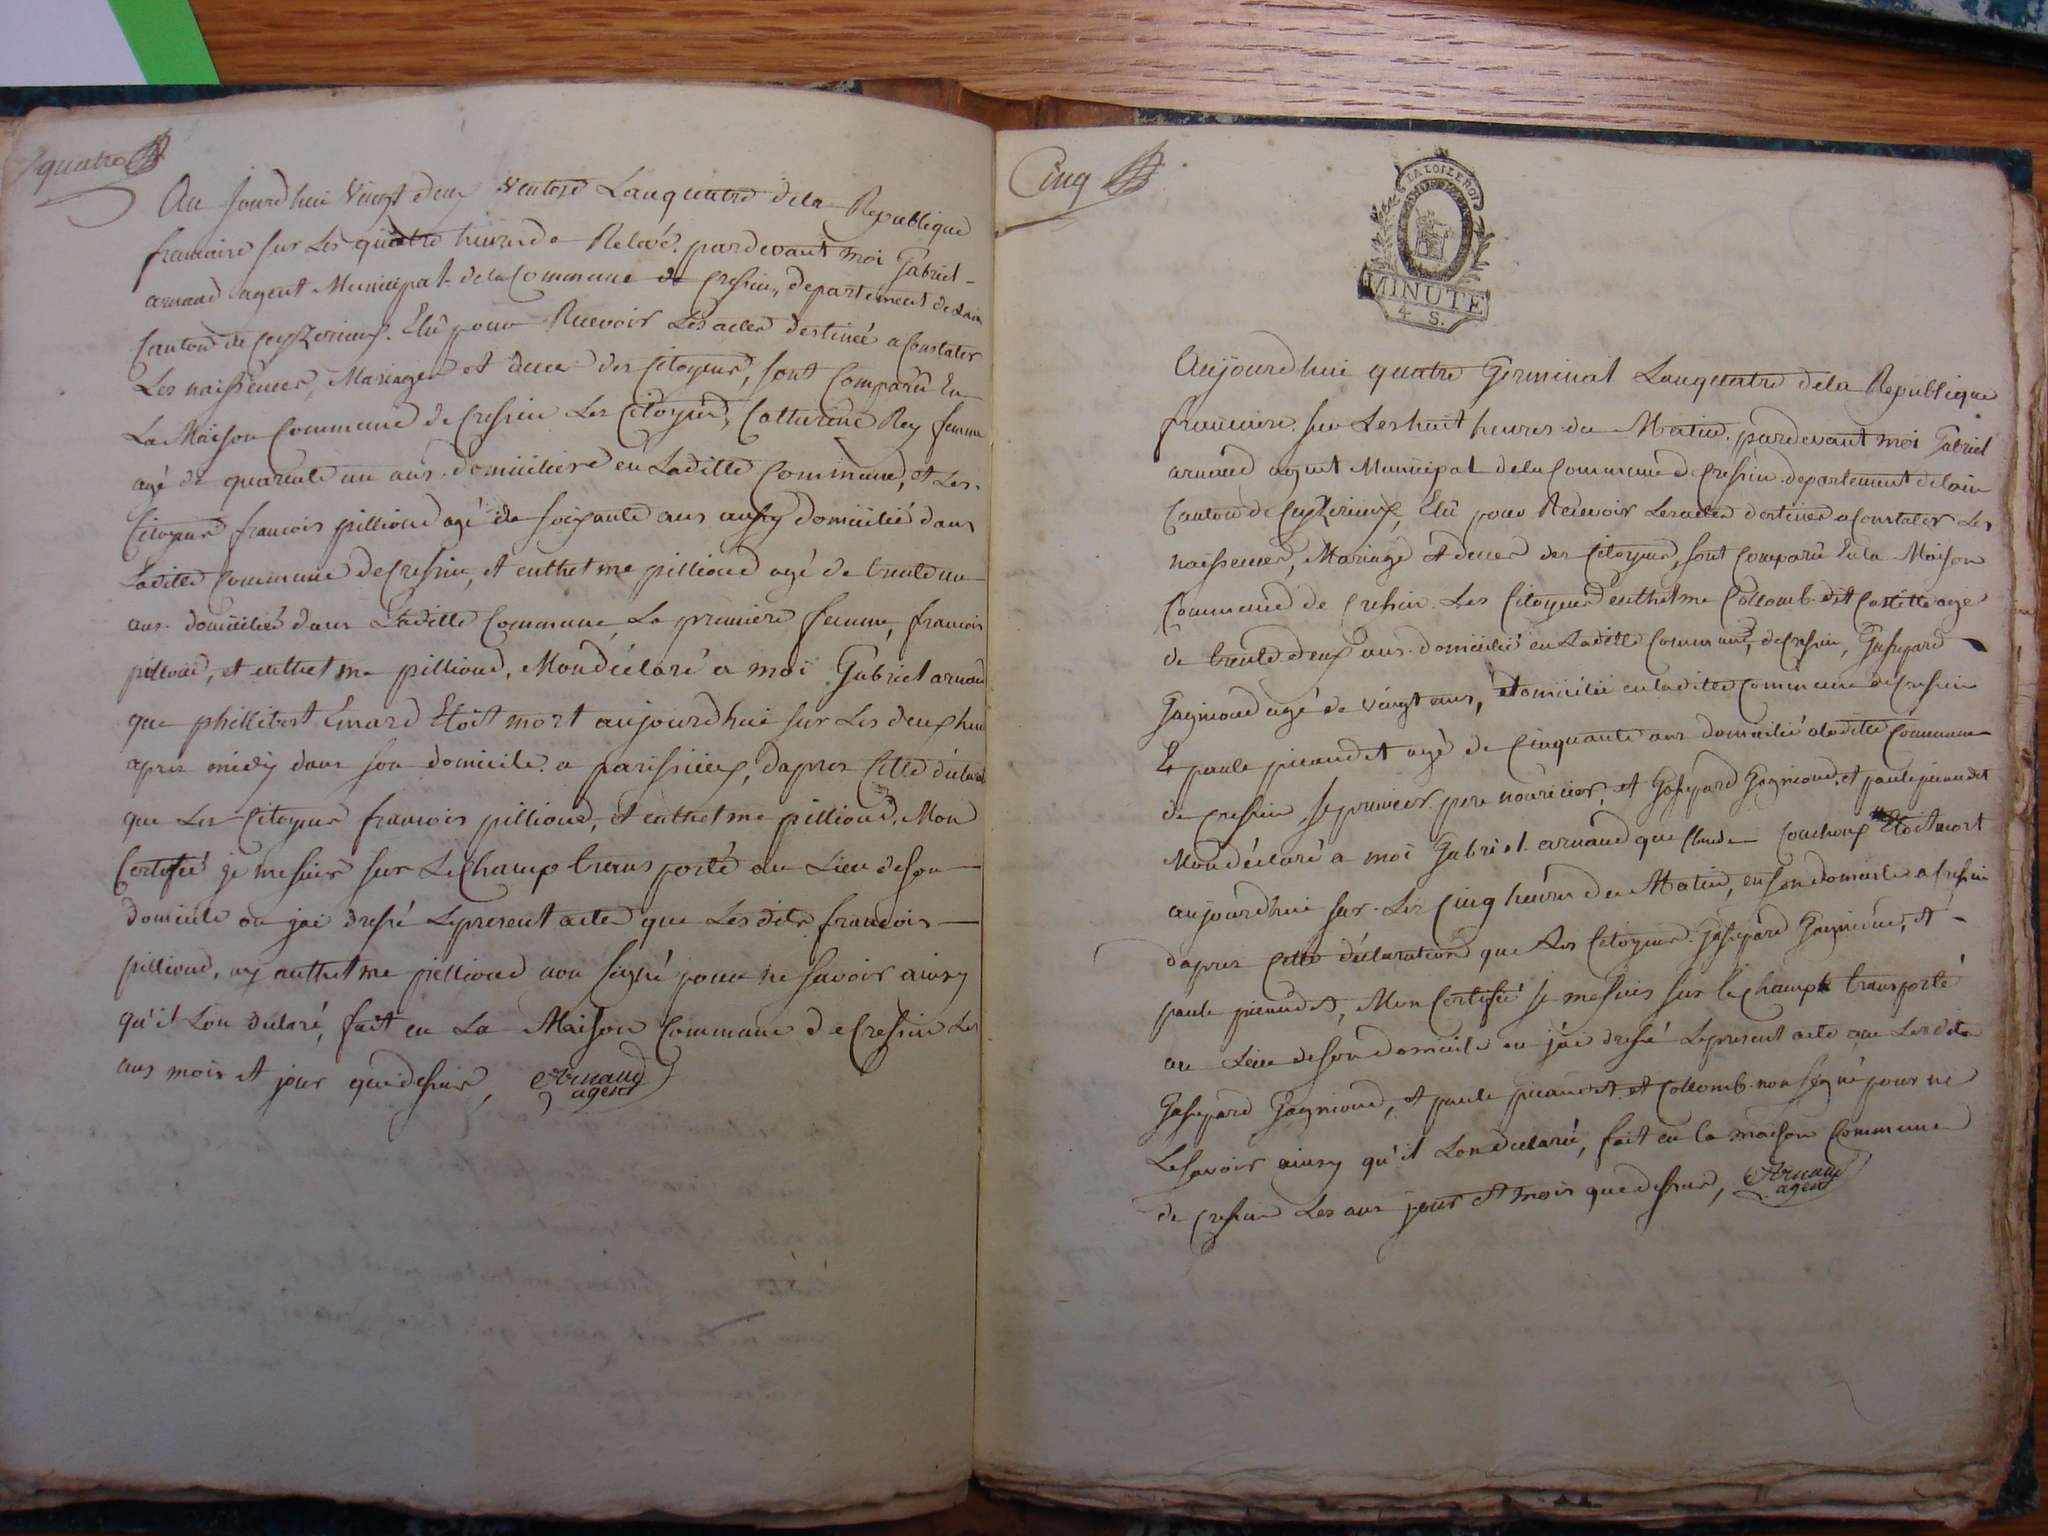 quatre
Au jourdhui Vingt deux ventose Lan quatre dela Republique
francaise sur Les quatre heures de Relevé. pardevant moi Gabriel
arnaud agent Municipal dela Commune de Cressin, departement de Lain
Canton de Ceyzerieux. Elû pour Recevoir Les actes destinée a Constater
Les naissences, Mariages et deces des Citoyens, sont Comparû En
La Maison Commune de Cressin Les Citoyens, Catherine Rey femme
agé de quarente un ans. domiciliere en Laditte Commune, et Les
Citoyens francois pillioud agé de soixante ans aussy domicilié dans
Laditte Commune de Cressin, et enthelme pillioud agé de trente un
ans. domicilié dans Laditte Commune La premiere femme, francois
pillioud, et enthelme pillioud, Mon déclaré a moi Gabriel arnaud
que phillibert Emard Etoit mort aujourdhui sur Les deux heu
apres midy dans son domicile. a parissieux, dapres Cette déclara
que Les Citoyens francois pillioud, et enthelme pillioud, Mon
Certifié je me suis sur Le Champ transporté au Lieu de son
domicile ou jai dressé Le present acte que Les dits francois
pillioud, ny anthelme pillioud non signé pour ne savoir ainsy
qu'il Lon declaré, fait en La Maison Commune de Cressin Les
ans mois et jour que dessus, Arnaud
agent
Cinq
LA LOI LE ROI
MINUTE
4 S.
Aujourdhui quatre Germinal Lan quatre dela Republique
francaise. sur Les huit heures du Matin. pardevant moi Gabriel
arnaud agent Municipal dela Commune de Cressin. departement de Lain
Canton de Ceyzerieux, Elû pour Recevoir Les actes destines a Constater Les
naissences, Mariage et deces des Citoyens, sont Comparû En la Maison
Commune de Cressin. Les Citoyens enthelme Collomb. dit Castille agé
de trente deux ans. domicilié en Laditte Commune, de Cressin, Gaspard
Gagnioud agé de vingt ans, domicilié en laditte Commune de Cressin
Et paule picaudet agé de Cinquante ans domicilié a laditte Commune
de Cressin Le premier pere nouricier, et Gaspard Gagnioud, et paule picaudet
Mon déclaré a moi Gabriel. arnaud que Claude Couchoux Etoit mort
aujourdhui sur. Les Cinq heures du Matin, en son domicile a Cressin
dapres Cette déclaration que Les Citoyens Gaspard Gagnioud, et
paule picaudet, Mon Certifié Je me suis sur le Champ transporté
au Lieu de son domicile ou jái dressé Le present acte que Les dits
Gaspard Gagnioud, et paule picaudet. et Collomb. non signé pour ne
Le savoir ainsy qu'il Lon declaré, fait en la maison Commune
de Cressin Les ans jour et mois que dessus, Arnaud
agent